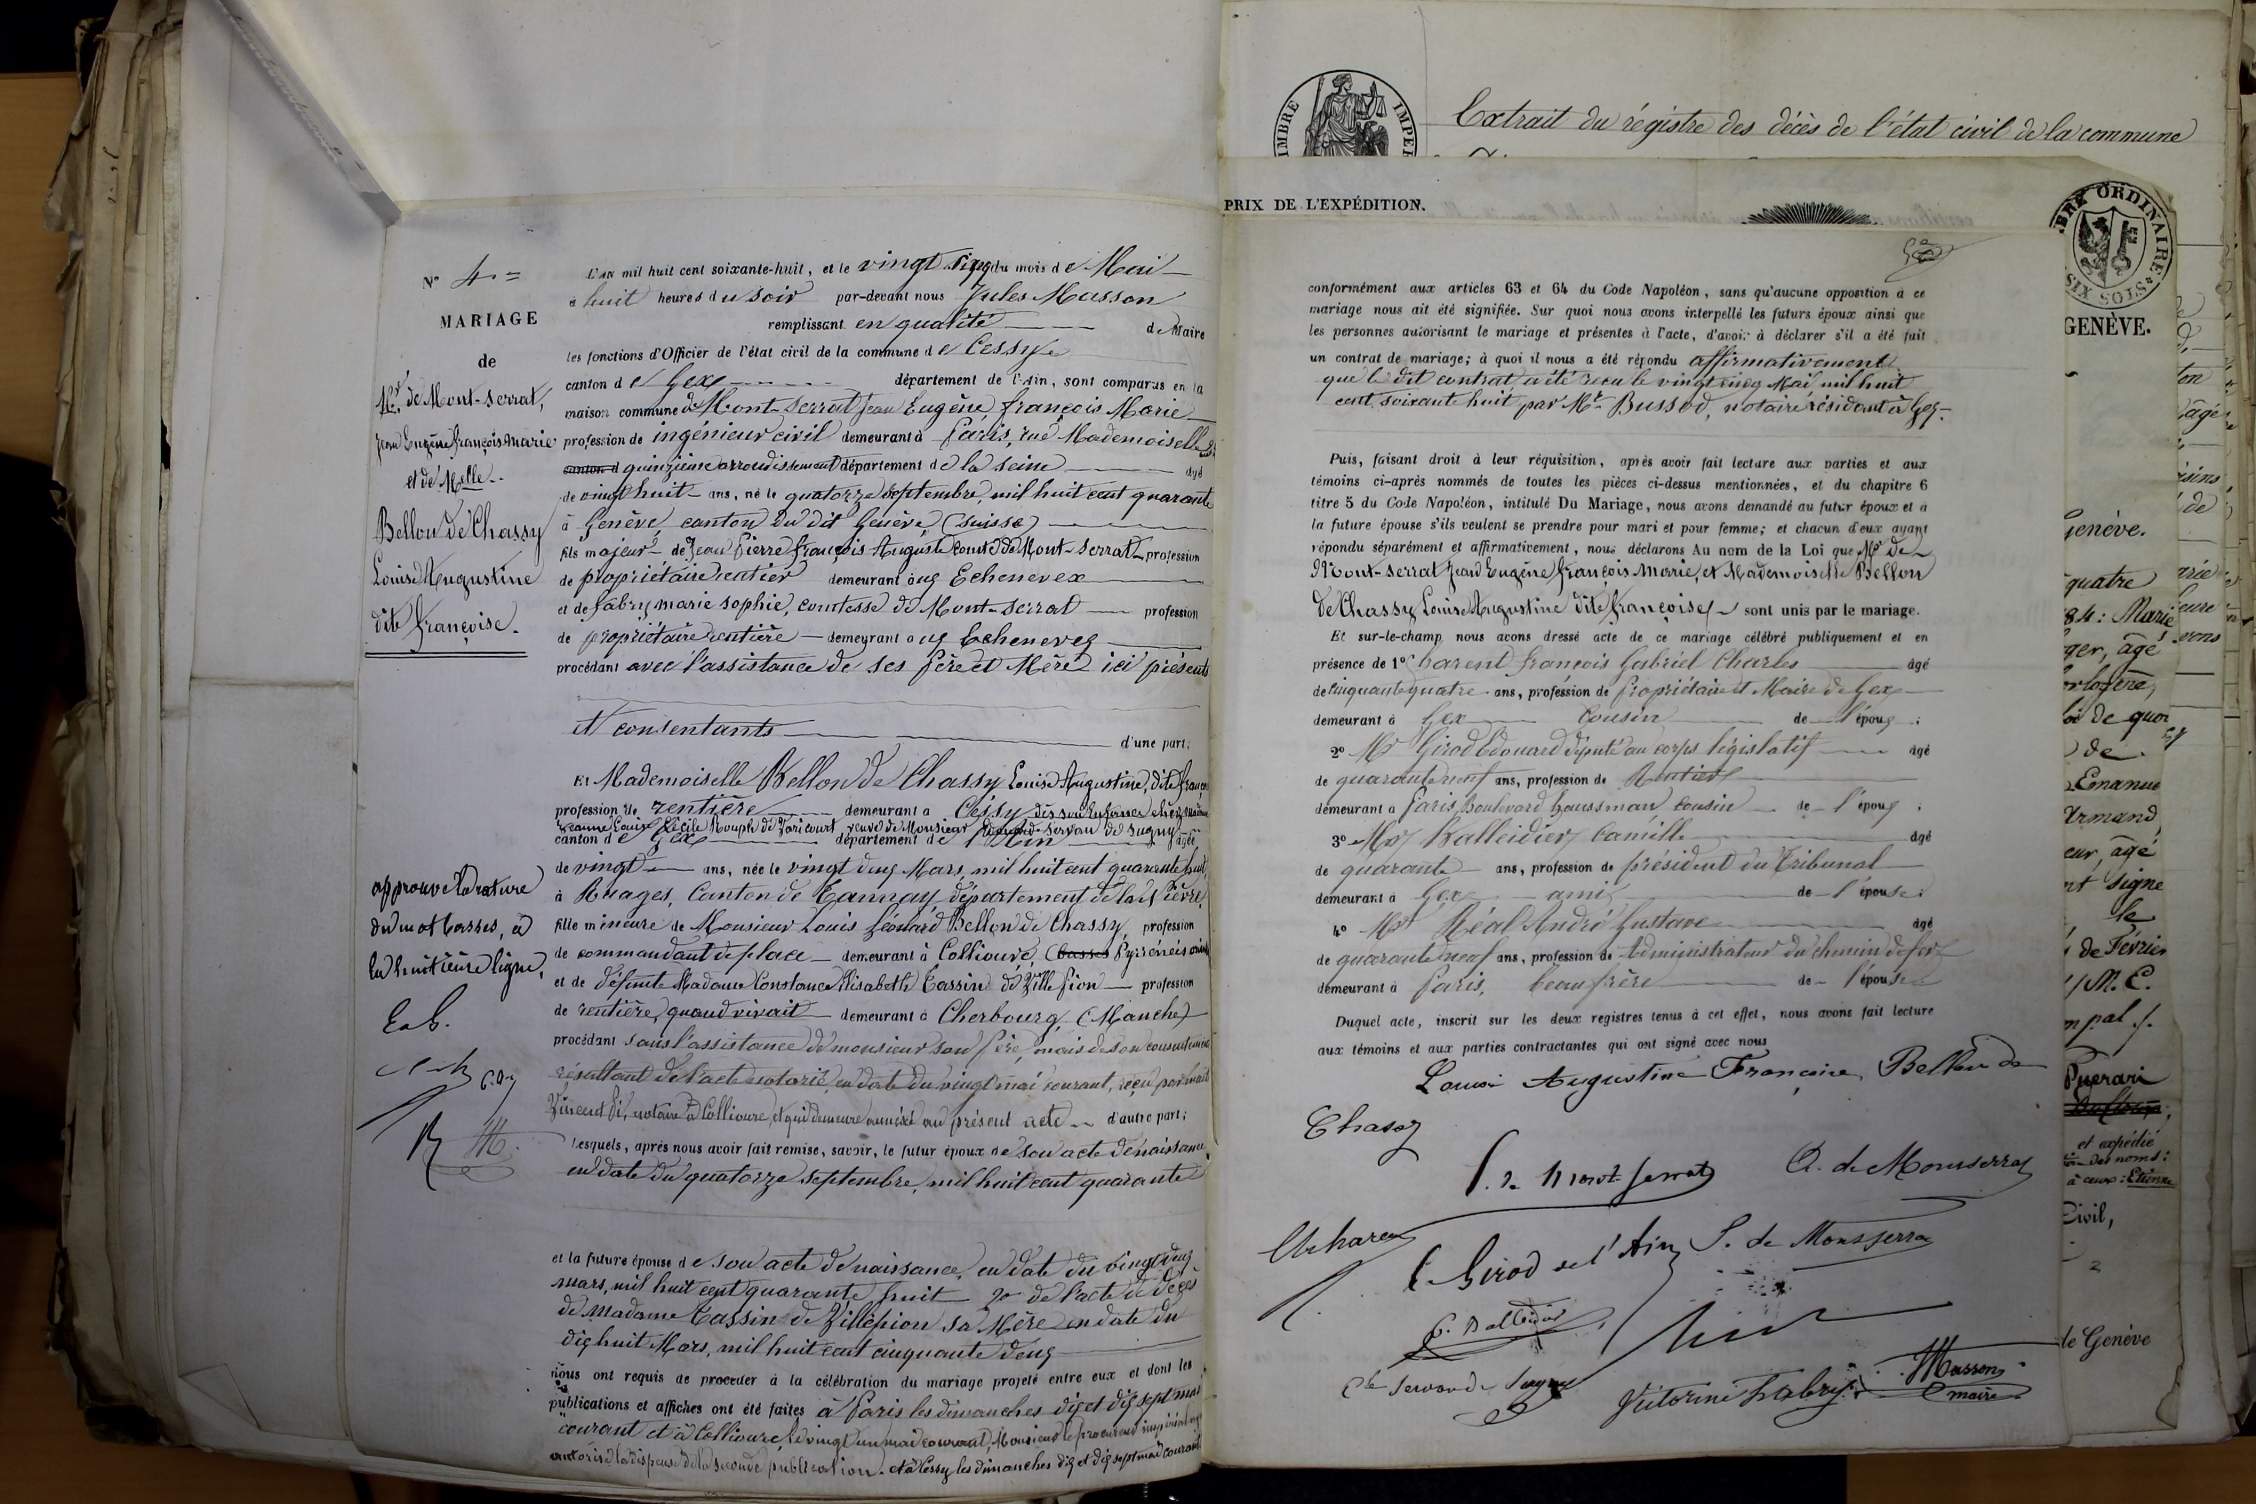 N° 4
MARIAGE
de
Mr. de Mont-Serrat,
Jean Eugène françois Marie
et de Melle
Bellon de Chassy
Louise Augustine
dite françoise.
approuvé la rature
du mot basses, à
la huitième ligne.
L'an mil huit cent soixante-huit, et le vingt cinq du mois de Mai
à huit heures du soir par-devant nous Jules Masson
remplissant en qualité de Maire
les fonctions d'Officier de l'état civil de la commune de Cessy
canton de Gex département de l'Ain, sont comparus en la
maison commune de Mont-Serrat Jean Eugène, françois Marie
profession de ingénieur civil demeurant à Paris, rue Mademoiselle
canton d quinzième arrondissement département de la Seine agé
de vingt huit ans, né le quatorze Septembre, mil huit cent quarante
à Genève, canton du dit Genève (Suisse)
fils majeur de Jean Pierre françois Auguste comte de Mont-Serrat profession
de propriétaire rentier demeurant à Echenevex
et de fabry marie sophie, comtesse de Mont-Serrat profession
de propriétaire rentière demeurant à Echenevex
procédant avec l'assistance de ses Père et Mère ici présents
et consentants d'une part;
Et Mademoiselle Bellon de Chassy Louise Augustine, dite franç
profession de rentière demeurant à Cessy dès son enfance chez Madame
Jeanne Louise Cécile Rouph de Varicourt, veuve de Monsieur Servan de Sugny
canton de Gex département de l'Ain agée
de vingt ans, née le vingt deux Mars, mil huit cent quarante huit,
à Ruages, Canton de Tannay, département de la Nièvre,
fille mineure de Monsieur Louis Léonard Bellon de Chassy, profession
de commandant de place demeurant à Collioure, (basses Pyrénées
et de défunte Madame Constance Elisabeth Cassin de Villepion profession
de rentière, quand vivait demeurant à Cherbourg, (Manche)
procédant sans l'assistance de monsieur son père, mais de son consentement
résultant de l'acte notarié, en date du vingt mai courant, reçu par
Vincent notaire à Collioure, et qui demeure annexé au présent acte d'autre part;
Lesquels, après nous avoir fait remise, savoir, le futur époux de son acte de naissance,
en date du quatorze septembre, mil huit cent quarante
et la future épouse de son acte de naissance, en date du vingt deux
mars, mil huit cent quarante huit 2° de l'acte de décès
de Madame Cassin de Villepion sa Mère en date du
dix huit Mars, mil huit cent cinquante deux
nous ont requis de procéder à la célébration du mariage projeté entre eux et dont les
publications et affiches ont été faites à Paris les dimanches dix et dix sept mai
courant et à Collioure, le vingt un mai courant, Monsieur le procureur impérial
autorisé la dispense de la seconde publication. et à Cessy les dimanches dix et dix sept mai courant
TIMBRE IMPER
Extrait du régistre des décès de l'état civil de la commune
PRIX DE L'EXPÉDITION.
conformément aux articles 63 et 64 du Code Napoléon, sans qu'aucune opposition à ce
mariage nous ait été signifiée. Sur quoi nous avons interpellé les futurs époux ainsi que
les personnes autorisant le mariage et présentes à l'acte, d'avoir à déclarer s'il a été fait
un contrat de mariage; à quoi il nous a été répondu affirmativement
que le dit contrat a été reçu le vingt cinq Mai mil huit
cent soixante huit, par Mr Bussod, notaire résidant à Gex.
Puis, faisant droit à leur réquisition, après avoir fait lecture aux parties et aux
témoins ci-après nommés de toutes les pièces ci-dessus mentionnées, et du chapitre 6
titre 5 du Code Napoléon, intitulé Du Mariage, nous avons demandé au futur époux et à
la future épouse s'ils veulent se prendre pour mari et pour femme; et chacun d'eux ayant
répondu séparément et affirmativement, nous déclarons Au nom de la Loi que Mr de
Mont-Serrat Jean Eugène françois Marie, et Mademoiselle Bellon
de Chassy Louise Augustine dite françoise sont unis par le mariage.
Et sur-le-champ nous avons dressé acte de ce mariage célébré publiquement et en
présence de 1° Charent françois Gabriel Charles agé
de cinquante quatre ans, profession de Propriétaire et Maire de Gex
demeurant à Gex cousin de l'époux;
2° Mr Girod Edouard député au corps législatif agé
de quarante neuf ans, profession de Rentier
demeurant à Paris, boulevard haussman cousin de l'époux;
3° Mr Balleidier Camille agé
de quarante ans, profession de président du Tribunal
demeurant à Gex ami de l'épouse;
4° Mr Réal André Gustave agé
de quarante neuf ans, profession de Administrateur du chemin de fer
demeurant à Paris, beau frère de l'épouse
Duquel acte, inscrit sur les deux registres tenus à cet effet, nous avons fait lecture
aux témoins et aux parties contractantes qui ont signé avec nous
Louise Augustine Françoise Bellon de
Chassy
de Mont-Serrat
A. de Montserrat
Charent
E. Girod de l'Ain
S. de Montserrat
C. Balleidier
Ctesse Servan de Sugny
Victorine Fabry
JMasson
maire
TIMBRE ORDINAIRE
SIX SOLS
GENÈVE.
Genève.
quatre
84: Marie
âgé
de quoi
de
Emanue
Armand,
eur, âgé
nt signé
le
de Février
M. C.
et expédié
des noms:
à ceux: Etienne
Civil,
de Genève